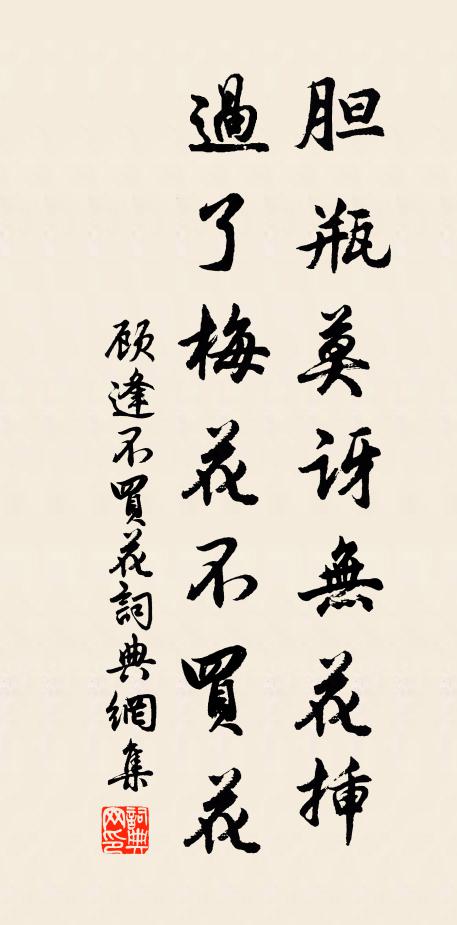 胆瓶莫訝無花揷
過了梅花不買花
顾逢不買花詞典網集
詞典网印